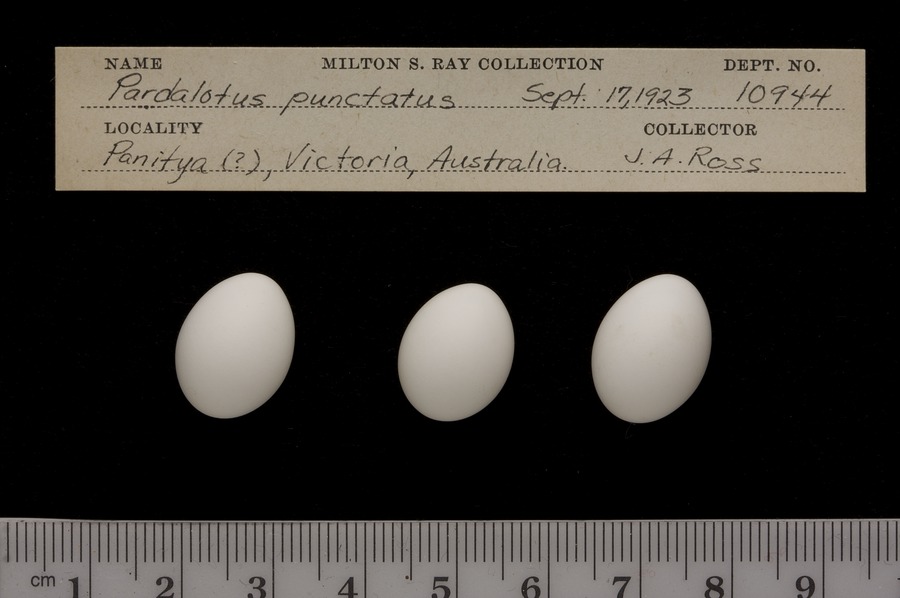 NAME MILTON S. RAY COLLECTION DEPT. NO.
Pardalotus punctatus Sept. 17, 1923 10944
LOCALITY COLLECTOR
Panitya (?), Victoria, Australia. J. A. Ross
cm 1 2 3 4 5 6 7 8 9